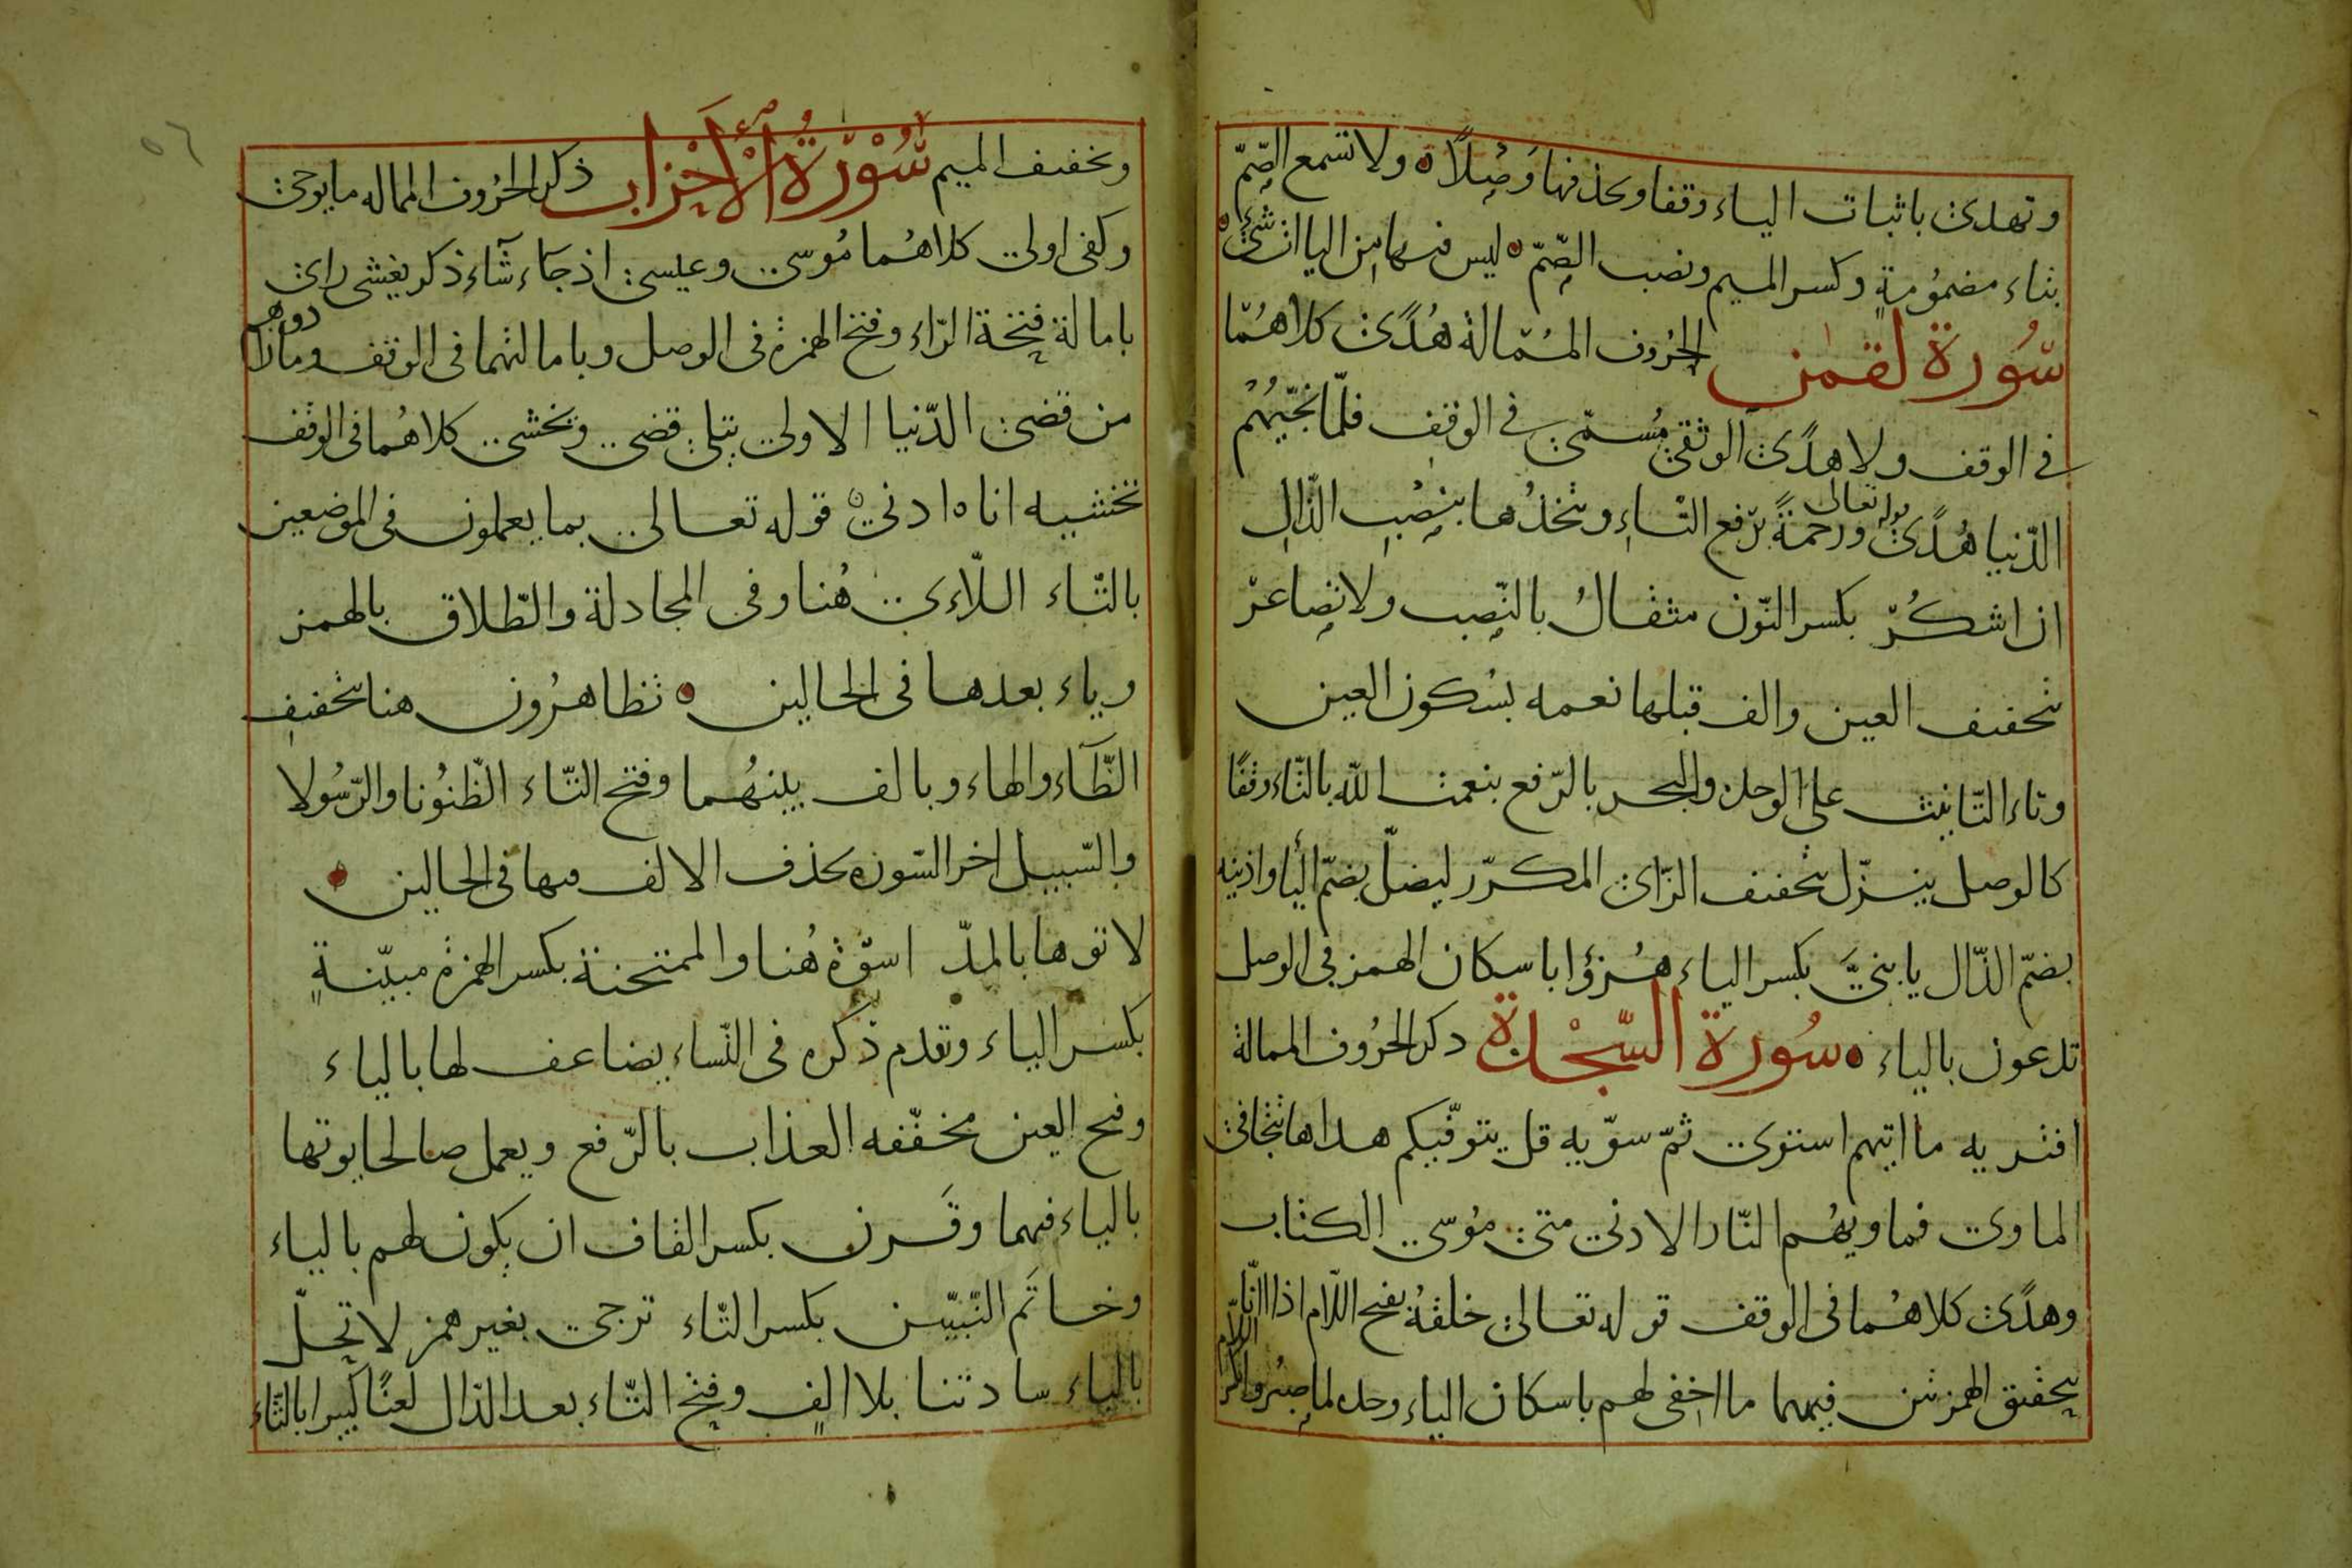 وتهدى باثبات الياء وقفا وبحذفها وصلا ولا تسمع الصم
بتاء مضمومة وكسر الميم ونصب الصم ليس فيها من الياات شئ
سورة لقمن الحروف الممالة هدى كلاهما
في الوقف ولا هدى الوثقى مسمى في الوقف فلما نجيهم
الدنيا هدى قوله تعالى ورحمة برفع التاء ويتخذها بنصب الذال
ان اشكر بكسر النون مثقال بالنصب ولا تصاعر
بتخفيف العين والف قبلها نعمه بسكون العين
وتاء التانيث على الوحد والبحر بالرفع بنعمت الله بالتاء وقفا
كالوصل ينزل بتخفيف الزاى المكرر ليضل بضم اليا واذنيه
بضم الذال يا بنى بكسر الياء هزؤا باسكان الهمز في الوصل
تدعون بالياء سورة السجدة ذكر الحروف الممالة
افتريه ما اتيهم استوى ثم سويه قل يتوفيكم هداها تتجافى
الماوى فماويهم النار الادنى متى موسى الكتاب
وهدى كلاهما في الوقف قوله تعالى خلقه بفتح اللام اذا انا
بتحقيق الهمزتين فيهما ما اخفى لهم باسكان الياء وحده لما صبروا بكسر اللام
وتخفيف الميم سورة الأحزاب ذكر الحروف الممالة ما يوحى
وكفى اولى كلاهما موسى وعيسى اذ جاء شاء ذكر يغشى راى
بامالة فتحة الراء وفتح الهمزة في الوصل وبامالتهما في الوقف وما زادوهم
من قضى الدنيا الاولى يتلى قضى وتخشى كلاهما في الوقف
تخشيه اناه ادنى قوله تعالى بما يعملون في الموضعين
بالتاء اللاءى هنا وفي المجادلة والطلاق بالهمز
وياء بعدها في الحالين تظاهرون هنا بتخفيف
الظاء والهاء وبالف بينهما وفتح التاء الظنونا والرسولا
والسبيل اخر السورة بحذف الالف فيها في الحالين
لاتوها بالمد اسوة هنا والممتحنة بكسر الهمزة مبينة
بكسر الياء وتقدم ذكره في النساء يضاعف لها بالياء
وفتح العين مخففه العذاب بالرفع ويعمل صالحا يوتها
بالياء فيهما وقرن بكسر القاف ان يكون لهم بالياء
وخاتم النبيين بكسر التاء ترجى بغير همز لا تحل
بالياء سادتنا بلا الف وفتح التاء بعد الدال لعنا كبيرا بالثاء